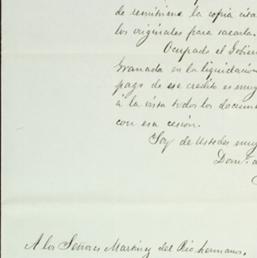 de remitirme la copia cita
los originales para sacarla.
Ocupado el Gobier
Granada en la liquidación
pago de ese credito es muy
á la vista todos los docum
con esa cesión.
Soy de Ustedes muy
Dom.
A los Señores Martin y del Rio hermanos,